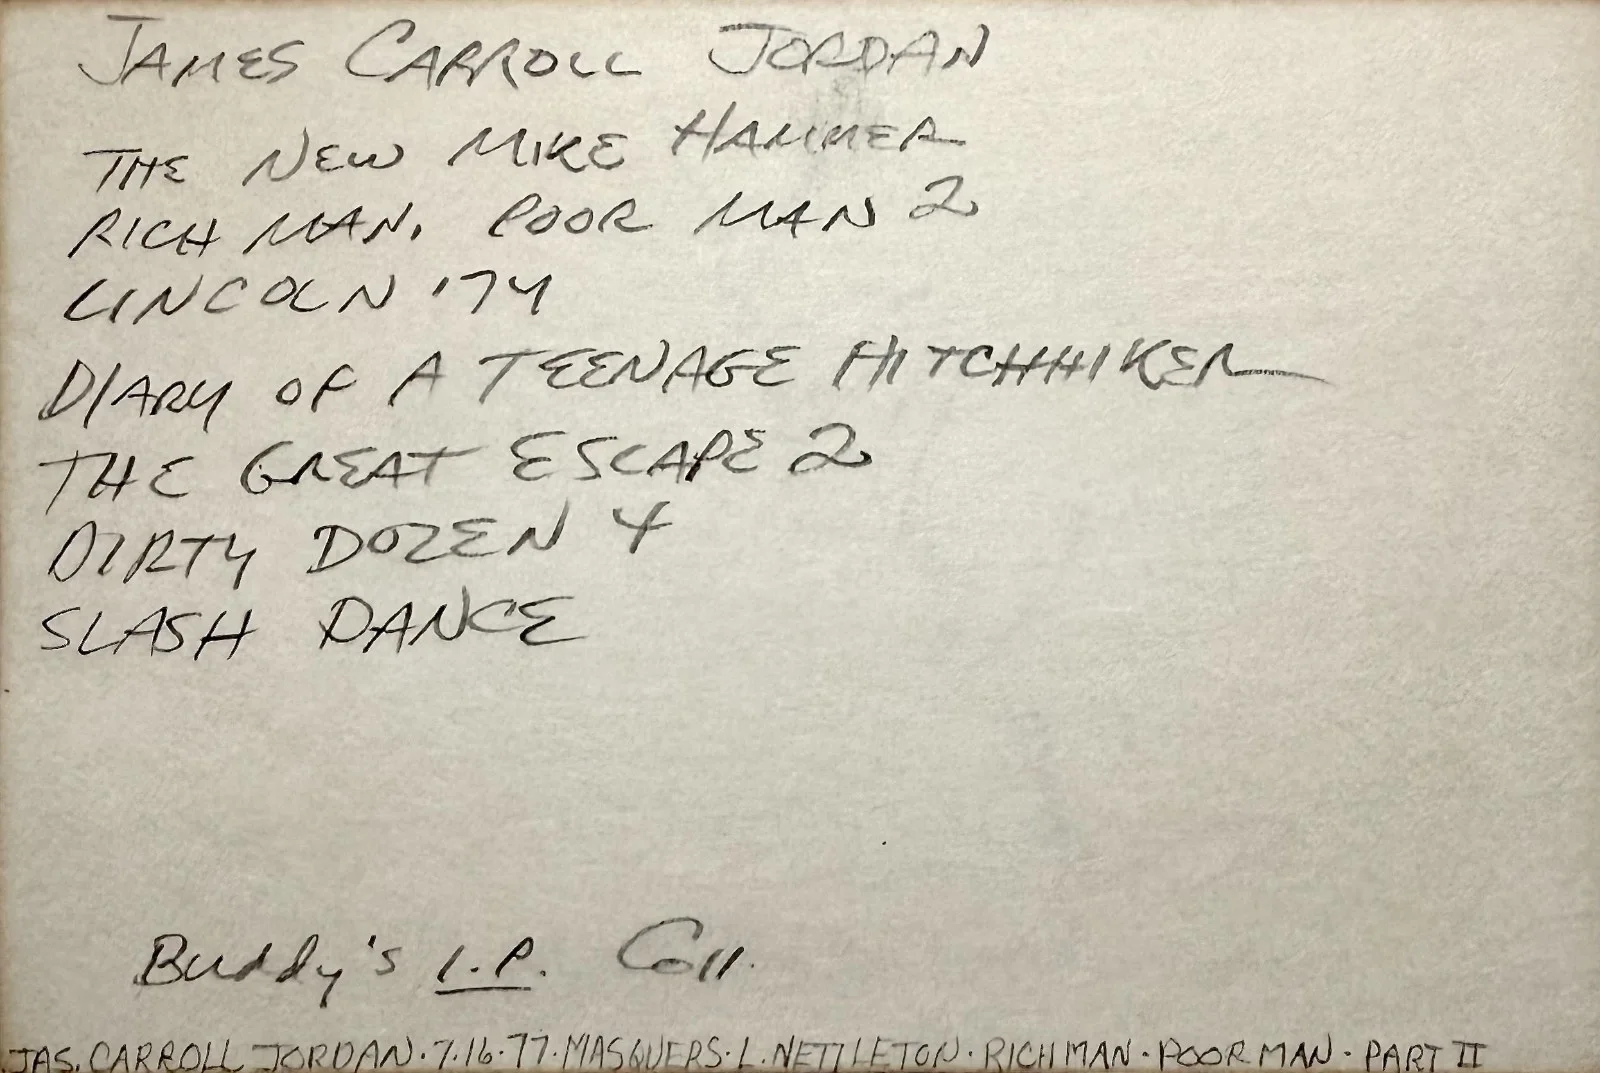 JAMES CARROLL JORDAN
THE NEW MIKE HAMMER
RICH MAN, POOR MAN 2
LINCOLN '74
DIARY OF A TEENAGE HITCHHIKER
THE GREAT ESCAPE 2
DIRTY DOZEN 4
SLASH DANCE
Buddy's I.P. Coll.
JAS. CARROLL JORDAN · 7·16·77 · MASQUERS · L. NETTLETON · RICH MAN · POOR MAN · PART II